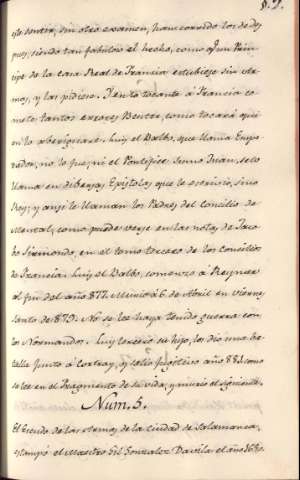 sin otro examen, han corrido los de des
pues, siendo tan fabuloso el hecho, como q̃ un Prin
cipe de la casa Real de Francia estubiese sin Ar
mas, y las pidiese. Y en lo tocante á Francia co
mete tantos errores Beuter, como tocará quie
n lo aberiguare. Luis el Balbo, que llama Empe
rador, no lo fue, ni el Pontifice Juan, se lo
llama en diversas Epistolas que le escrivió, sino
Rey; y ansi le llaman los Padres del Concilio de
como puede verse en las notas de Jaco
bo Sirmondo, en el tomo tercero de los concilios
de Francia. Luis el Balbo, comenzo á Reynar
al fin del año 877. Murió á 6. de Abril en Viernes
santo de 879. No se lee haya tenido guerra con
los Normandos. Luis tercero su hijo, les dio una ba
talla junto á y año 881. como
se lee en el Fragmento de su vida, y
Num. 5.
El Escudo de las Armas de la Ciudad de Salamanca,
estampó el Maestro Gil Gonzalez Davila el año 1650.